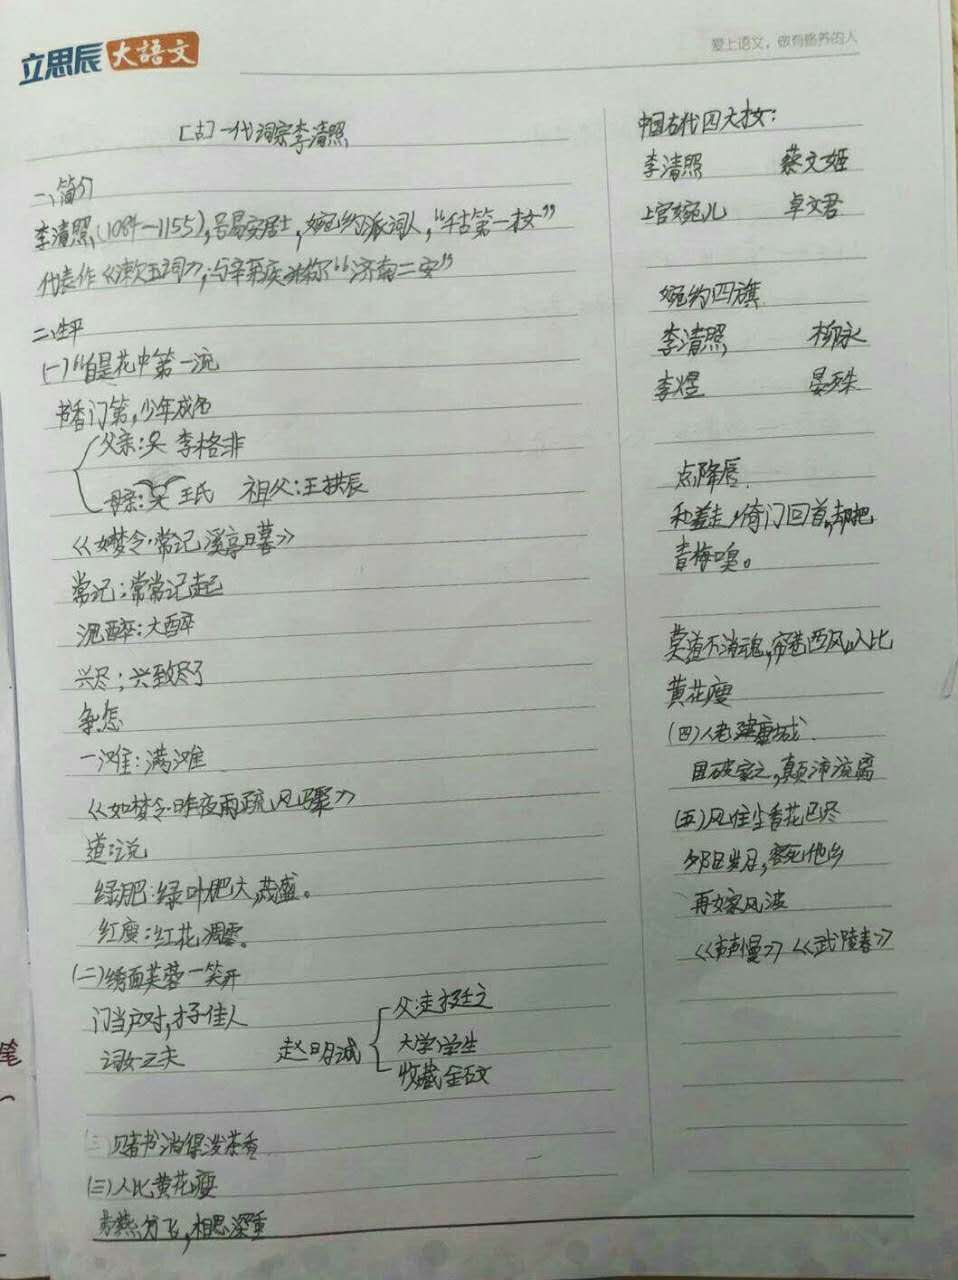 立思辰大語文
爱上语文，做有修养的人
[古]一代词宗李清照
一、简介
李清照,(1084—1155),号易安居士,婉约派词人,“千古第一才女”
代表作《漱玉词》,与辛弃疾并称“济南二安”
二、生平
(一)“自是花中第一流
书香门第,少年成名
父亲:李格非
母亲:王氏 祖父:王拱辰
《如梦令·常记溪亭日暮》
常记:常常记起
沉醉:大醉
兴尽:兴致尽了
争:怎
一滩:满滩
《如梦令·昨夜雨疏风骤》
道:说
绿肥:绿叶肥大,茂盛。
红瘦:红花凋零。
(二)绣面芙蓉一笑开
门当户对,才子佳人
词女之夫 赵明诚
父赵挺之
大学学生
收藏金石文
(三)赌书消得泼茶香
(三)人比黄花瘦
劳燕分飞,相思深重
中国古代四大才女:
李清照 蔡文姬
上官婉儿 卓文君
婉约四旗
李清照 柳永
李煜 晏殊
点降唇
和羞走,倚门回首,却把
青梅嗅。
莫道不消魂,帘卷西风,人比
黄花瘦
(四)人老建康城
国破家亡,颠沛流离
(五)风住尘香花已尽
夕阳岁月,客死他乡
再嫁风波
《声声慢》《武陵春》
笔